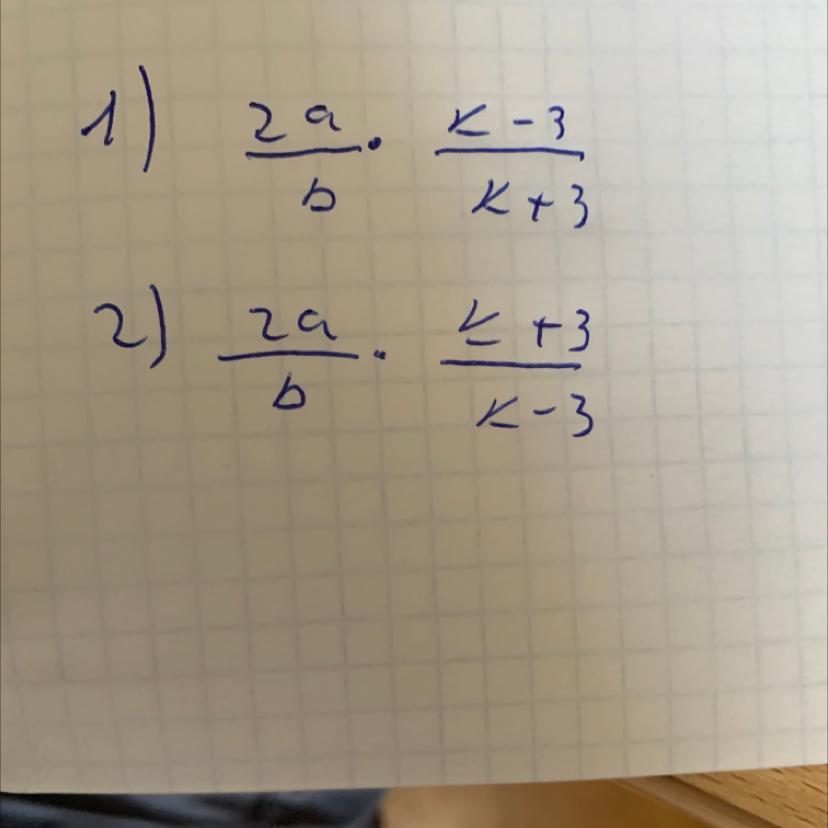 1) 2a/b · (k-3)/(k+3)
2) 2a/b · (k+3)/(k-3)